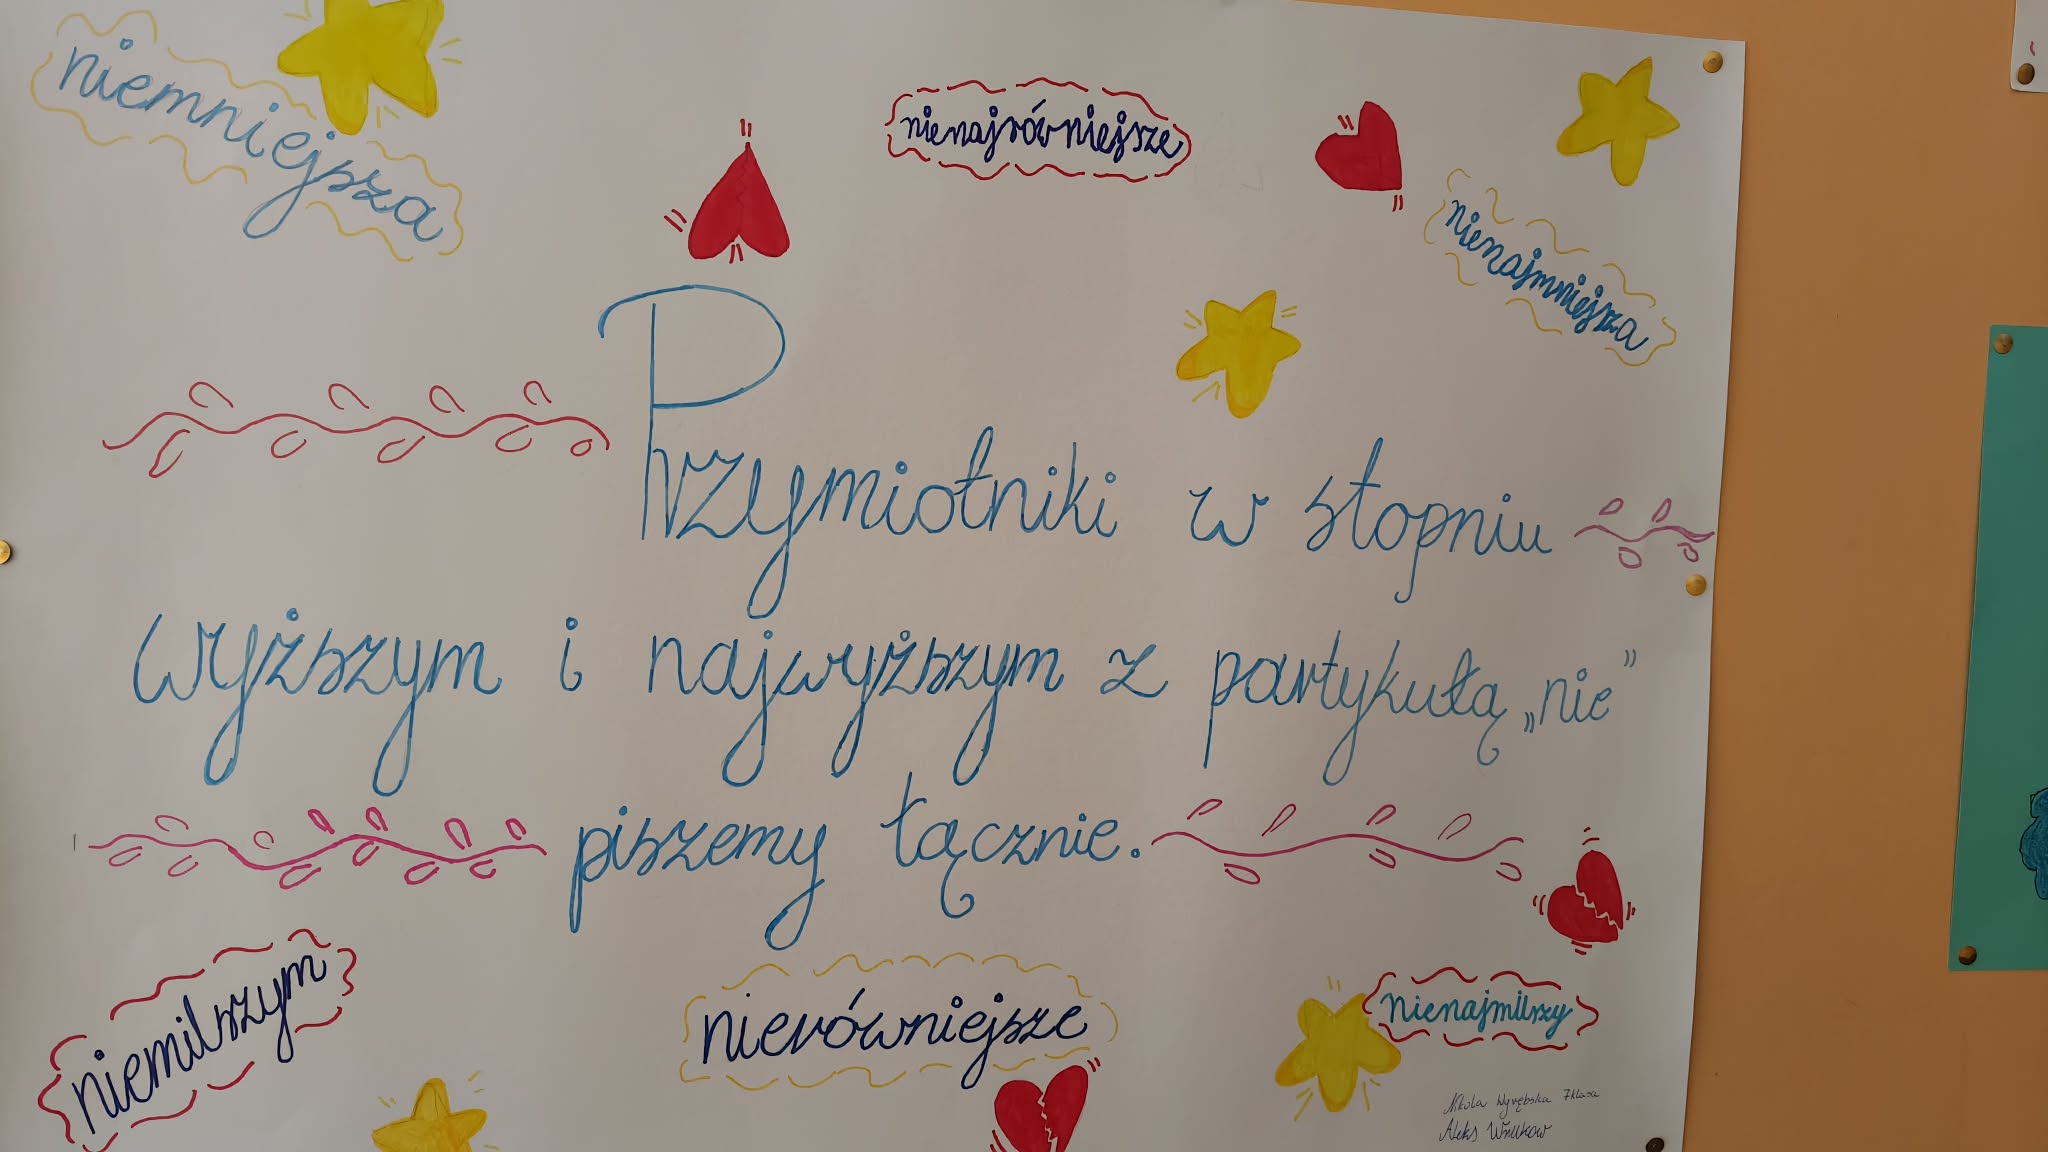 niemniejsza
nienajrówniejsze
nienajmniejsza
Przymiotniki w stopniu
wyższym i najwyższym z partykułą „nie”
piszemy łącznie.
niemilszym
nierówniejsze
nienajmilszy
Nikola Wyrębska 7klasa
Aleks